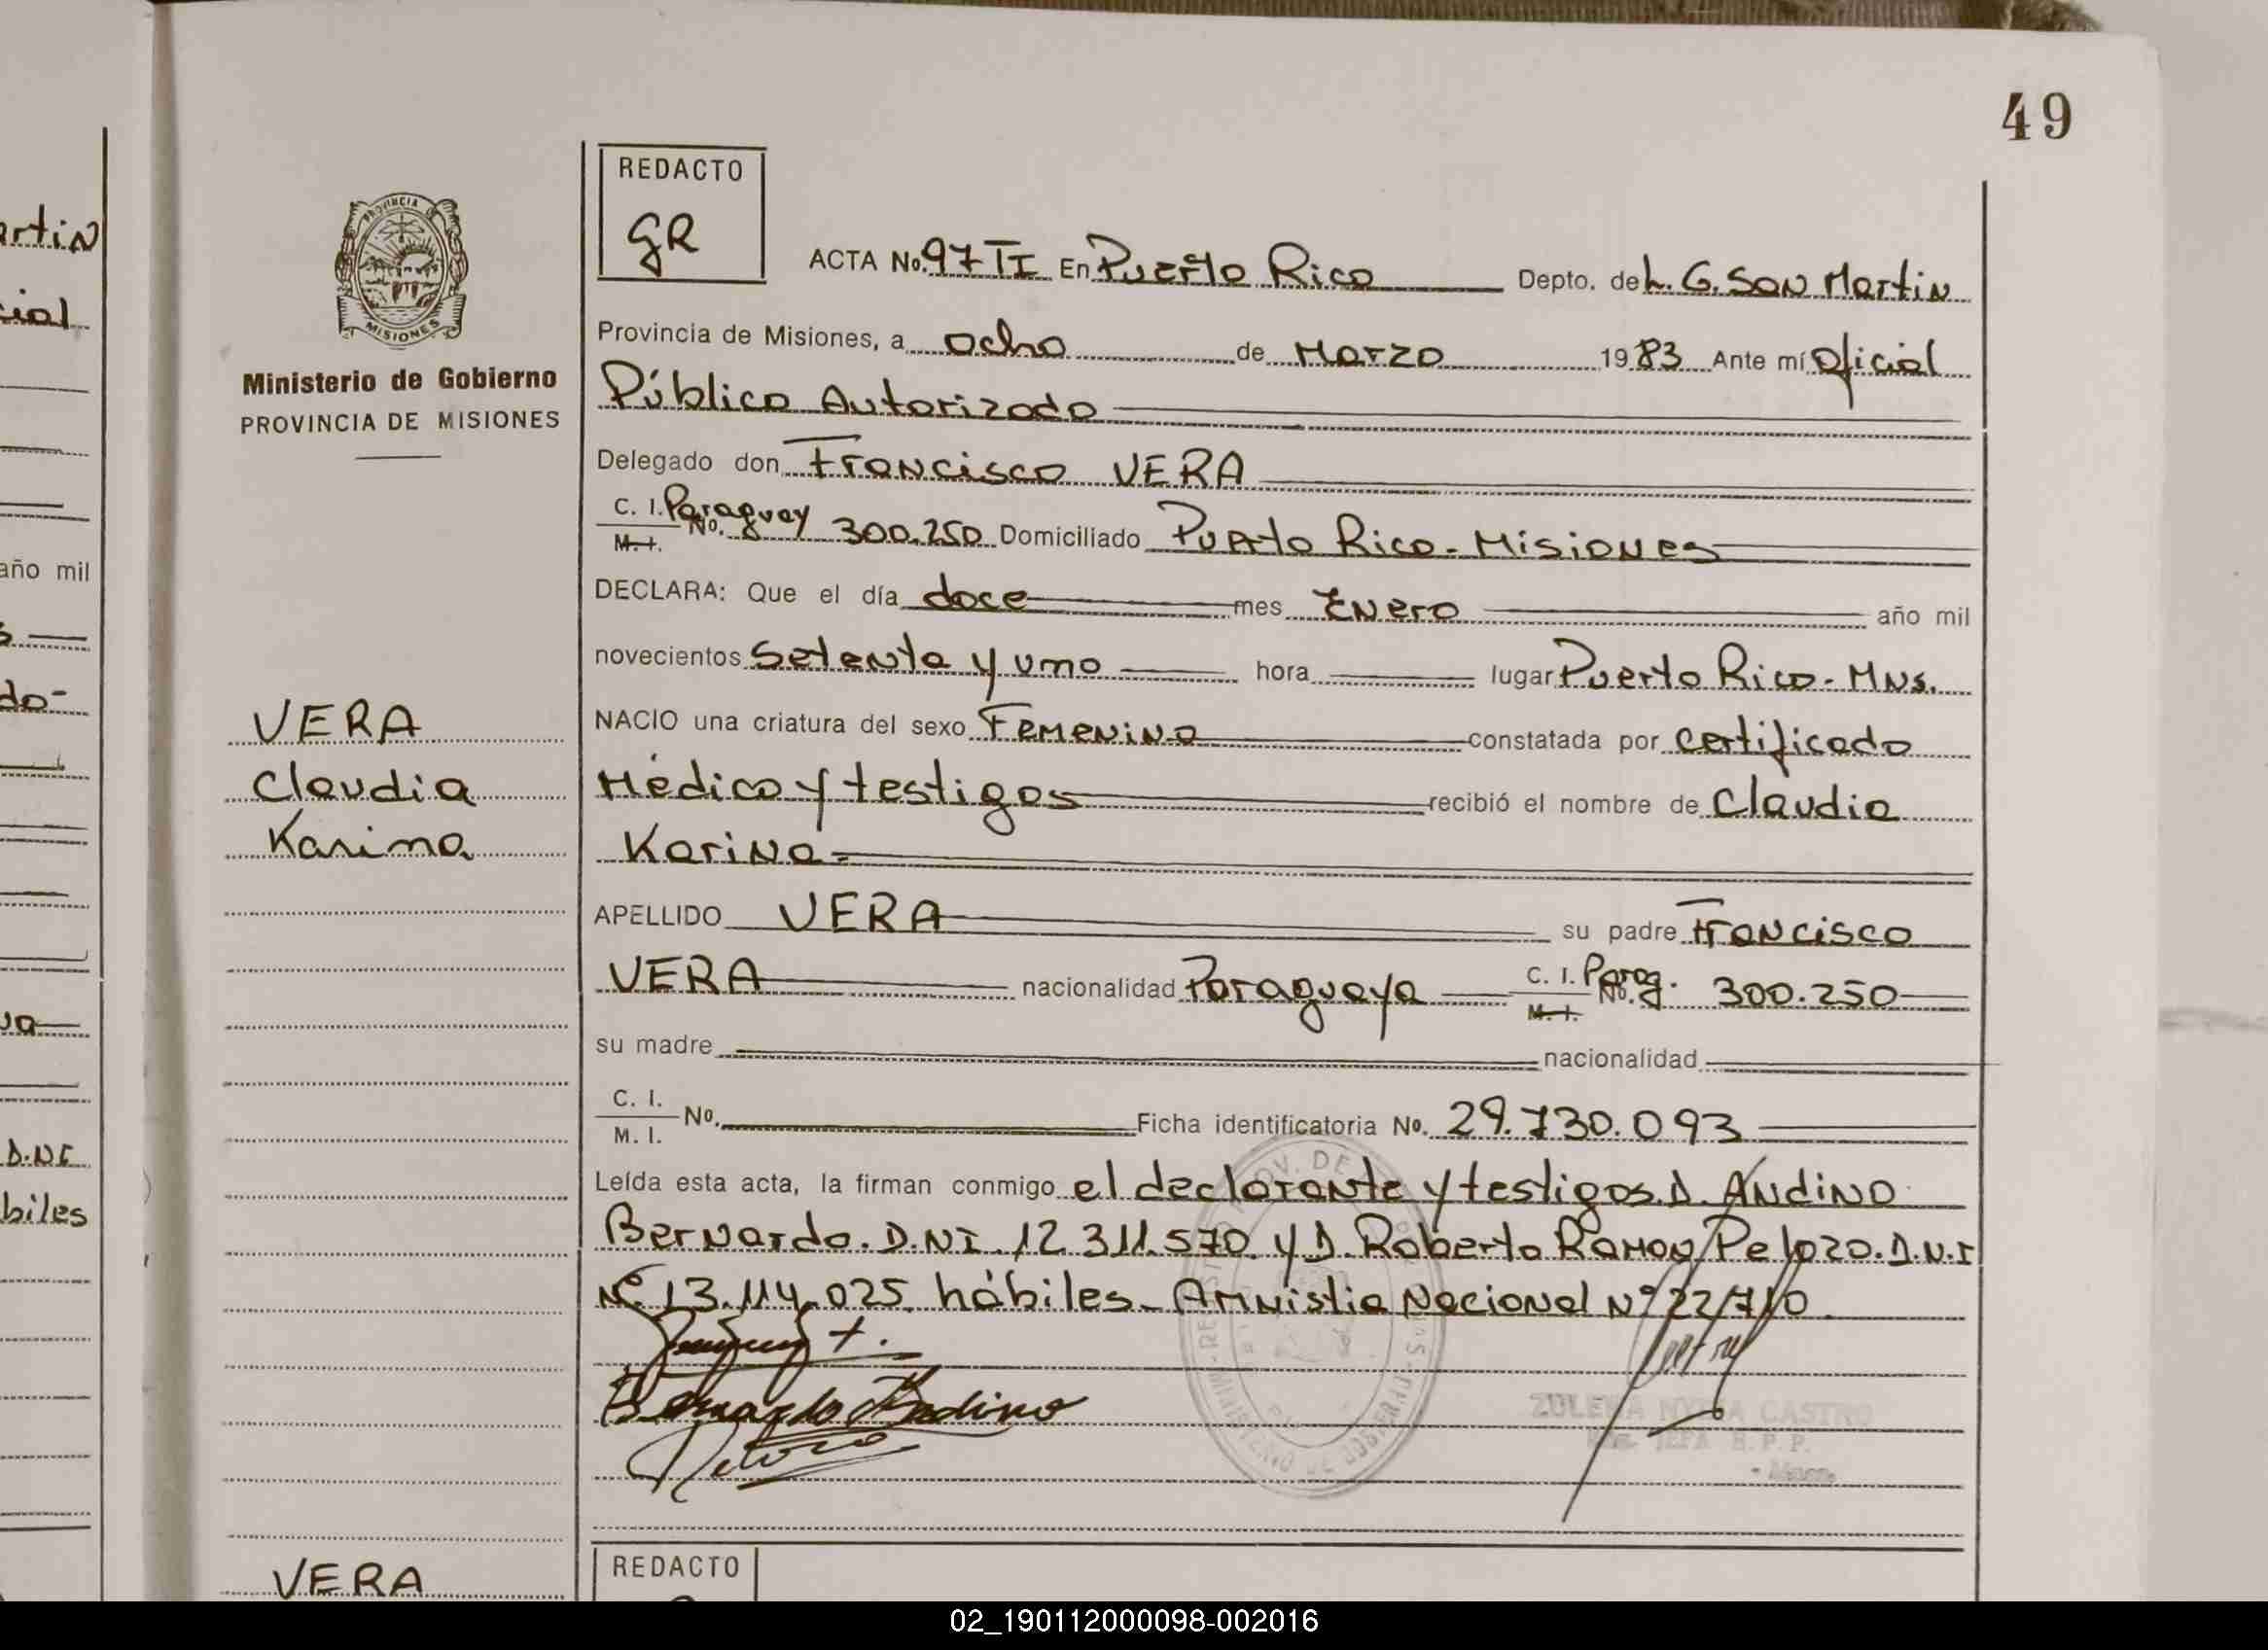 49
artin
cial
año mil
do-
D.NI
biles
PROVINCIA
MISIONES
Ministerio de Gobierno
PROVINCIA DE MISIONES
VERA
Claudia
Karina
VERA
REDACTO
GR
ACTA No. 97 TI En Puerto Rico Depto. de L. G. San Martin
Provincia de Misiones, a ocho de Marzo 1983 Ante mí Oficial
Público Autorizado
Delegado don Francisco VERA
C. I. Paraguay
M. I. No. 300.250 Domiciliado Puerto Rico - Misiones
DECLARA: Que el día doce mes Enero año mil
novecientos Setenta y uno hora lugar Puerto Rico - Mns.
NACIO una criatura del sexo Femenino constatada por certificado
Médico y testigos recibió el nombre de Claudia
Karina
APELLIDO VERA su padre Francisco
VERA nacionalidad Paraguaya C. I. Parag.
M. I. No. 300.250
su madre nacionalidad
C. I.
M. I. No. Ficha identificatoria No. 29.730.093
Leída esta acta, la firman conmigo el declarante y testigos D. Andino
Bernardo. D.NI. 12.311.570 y D. Roberto Ramon Pelozo. D.N.I
Nº 13.114.025 hábiles - Amnistia Nacional Nº 22/710
Bernardo Andino
Pelozo
CASTRO
REDACTO
02_190112000098-002016